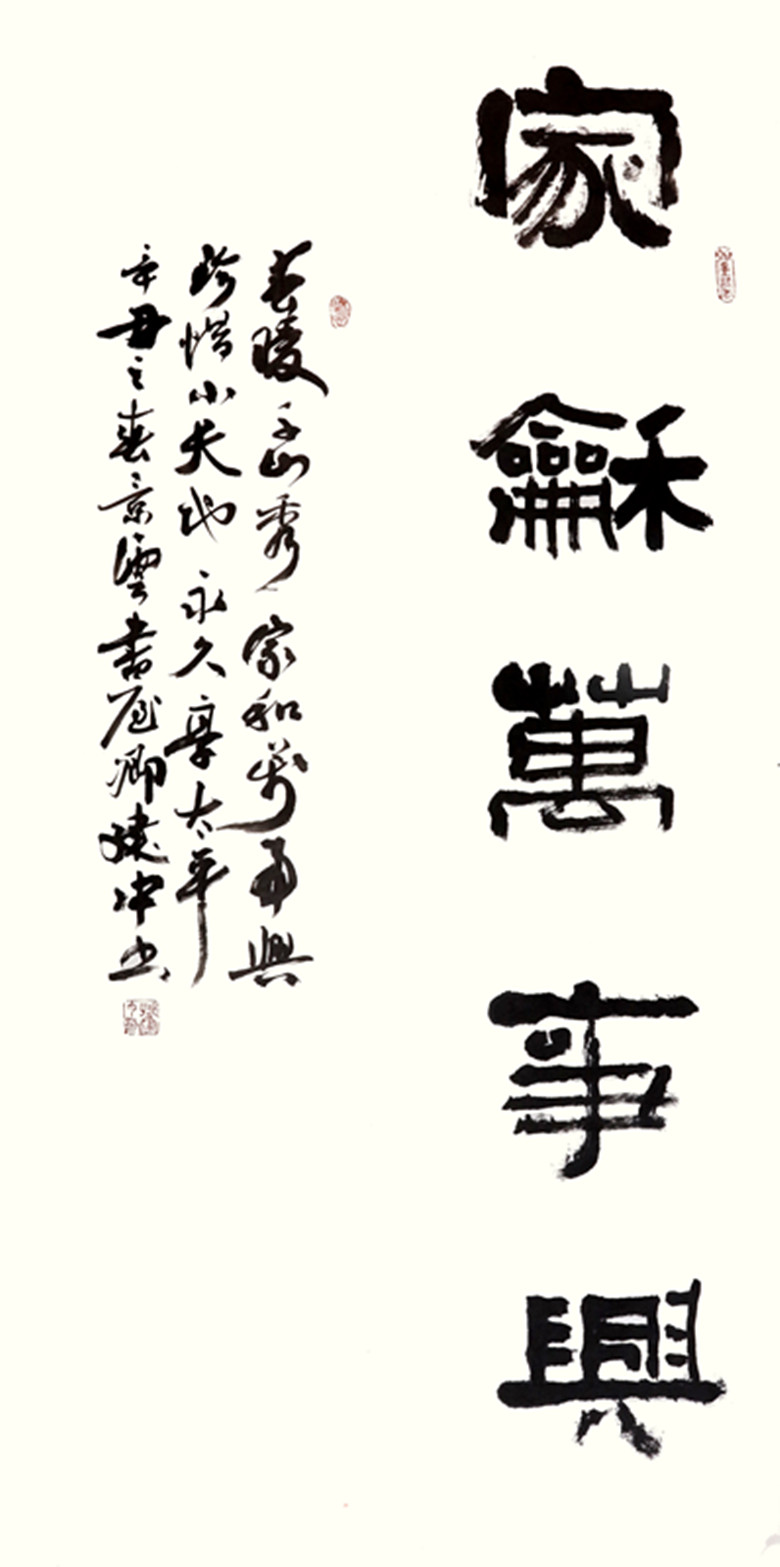 家龢萬事興
春暖千山秀家和萬事興
珍惜小天地永久享太平
辛丑之春景雲書屋卿冲书